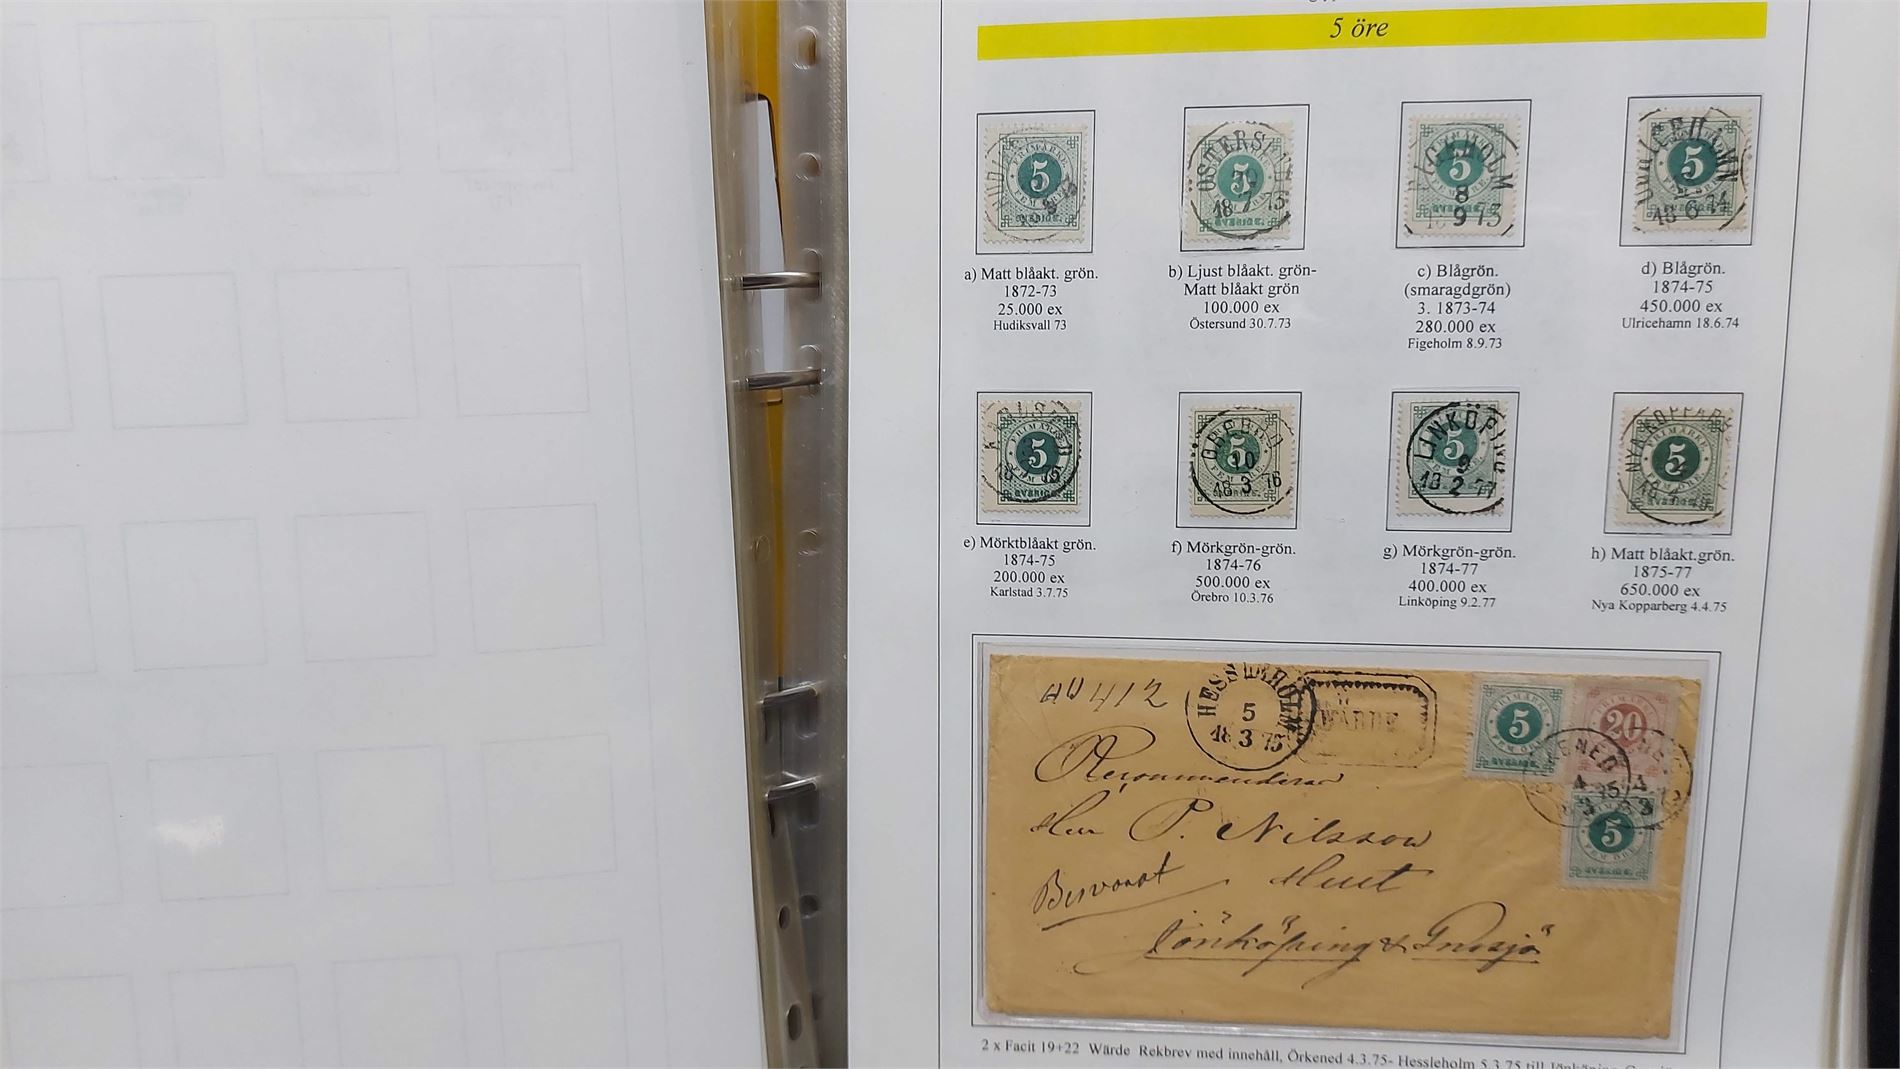 5 öre
a) Matt blåakt. grön.
1872-73
25.000 ex
Hudiksvall 73
b) Ljust blåakt. grön-
Matt blåakt grön
100.000 ex
Östersund 30.7.73
c) Blågrön.
(smaragdgrön)
3. 1873-74
280.000 ex
Figeholm 8.9.73
d) Blågrön.
1874-75
450.000 ex
Ulricehamn 18.6.74
e) Mörktblåakt grön.
1874-75
200.000 ex
Karlstad 3.7.75
f) Mörkgrön-grön.
1874-76
500.000 ex
Örebro 10.3.76
g) Mörkgrön-grön.
1874-77
400.000 ex
Linköping 9.2.77
h) Matt blåakt.grön.
1875-77
650.000 ex
Nya Kopparberg 4.4.75
412
5
18 3 75
WÄRDE
FRIMÄRKE
5
FEM ÖRE
20
5
FEM ÖRE
Recommenderas
Herr P. Nilsson
Jönköping & Gnosjö
2 x Facit 19+22 Wärde Rekbrev med innehåll, Örkened 4.3.75- Hessleholm 5.3.75 till Jönköping